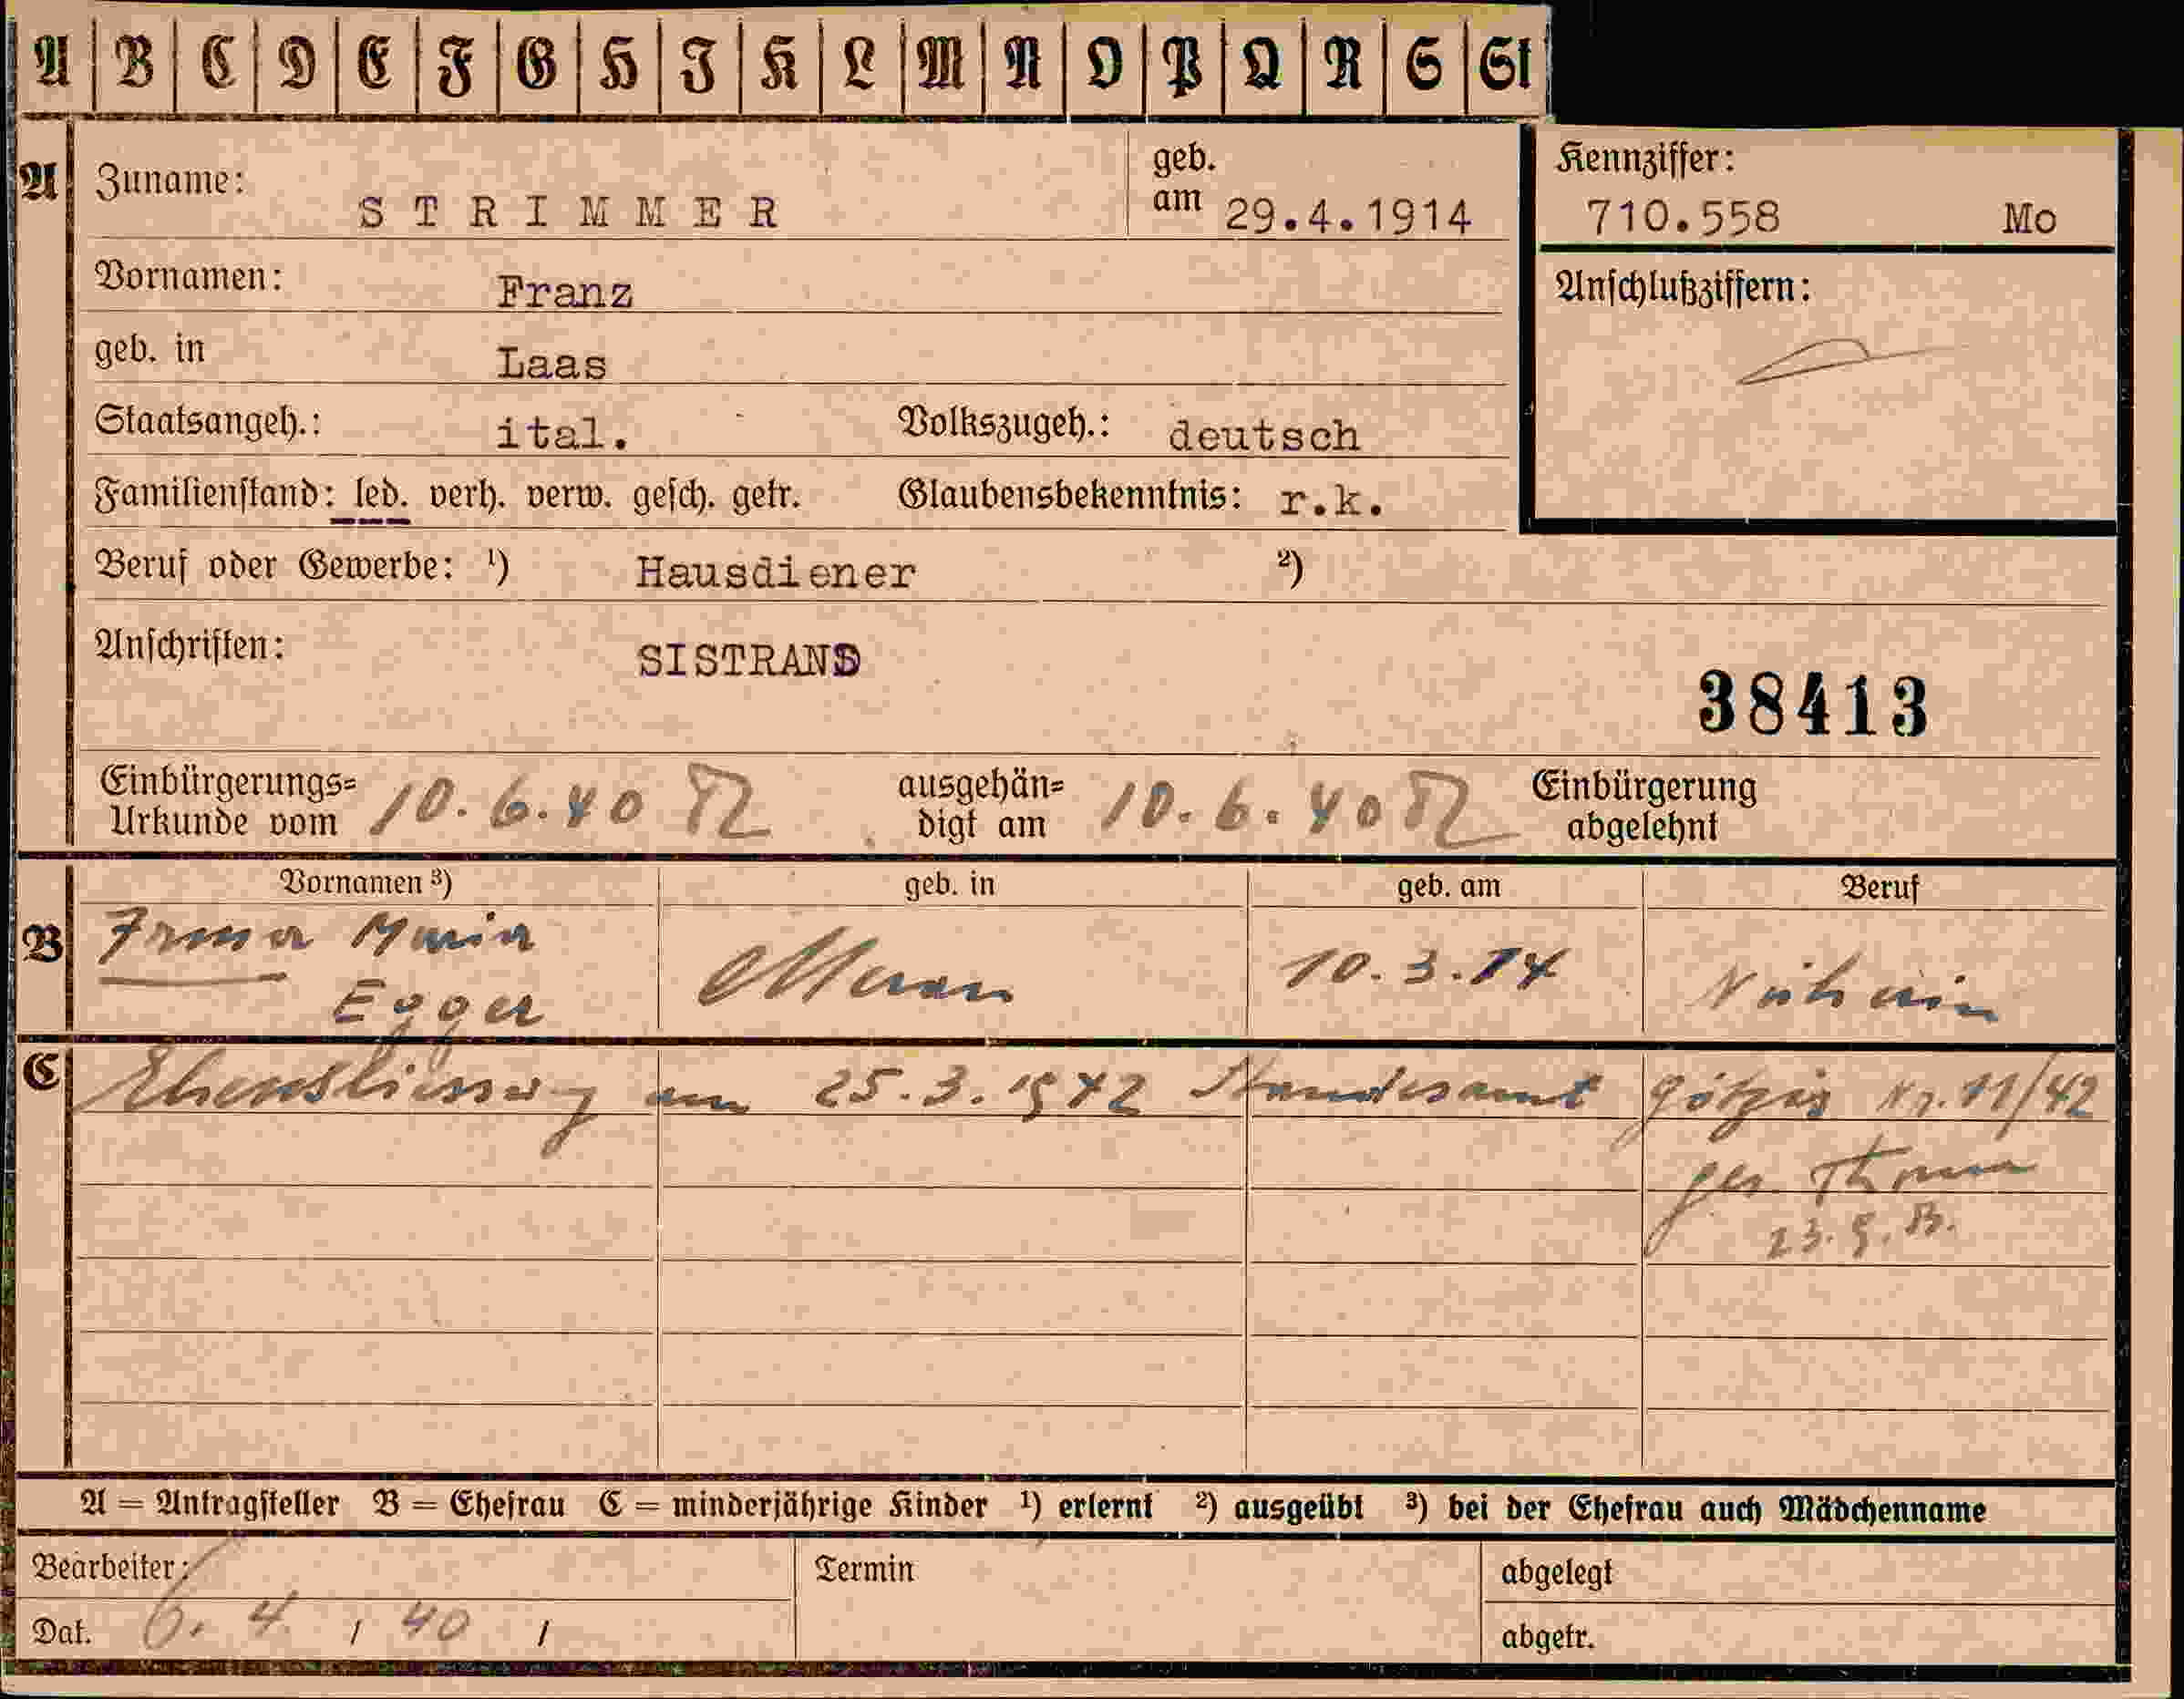 A B C D E F G H I K L M N O P Q R S St
A Zuname: STRIMMER geb. am 29.4.1914 Kennziffer: 710.558 Mo
Vornamen: Franz Anschlußziffern:
geb. in Laas
Staatsangeh.: ital. Volkszugeh.: deutsch
Familienstand: led. verh. verw. gesch. getr. Glaubensbekenntnis: r.k.
Beruf oder Gewerbe: ¹) Hausdiener ²)
Anschriften: SISTRANS
38413
Einbürgerungs= Urkunde vom 10.6.40 ausgehän= digt am 10.6.40 Einbürgerung abgelehnt
Vornamen ³) geb. in geb. am Beruf
B Irma Maria
Egger Meran 10.3.14 Näherin
C Eheschliessung am 25.3.1942 Standesamt Götzis Nr. 11/42
ges.
A = Antragsteller B = Ehefrau C = minderjährige Kinder ¹) erlernt ²) ausgeübt ³) bei der Ehefrau auch Mädchenname
Bearbeiter: Termin abgelegt
Dat. 6. 4. / 40 / abgetr.